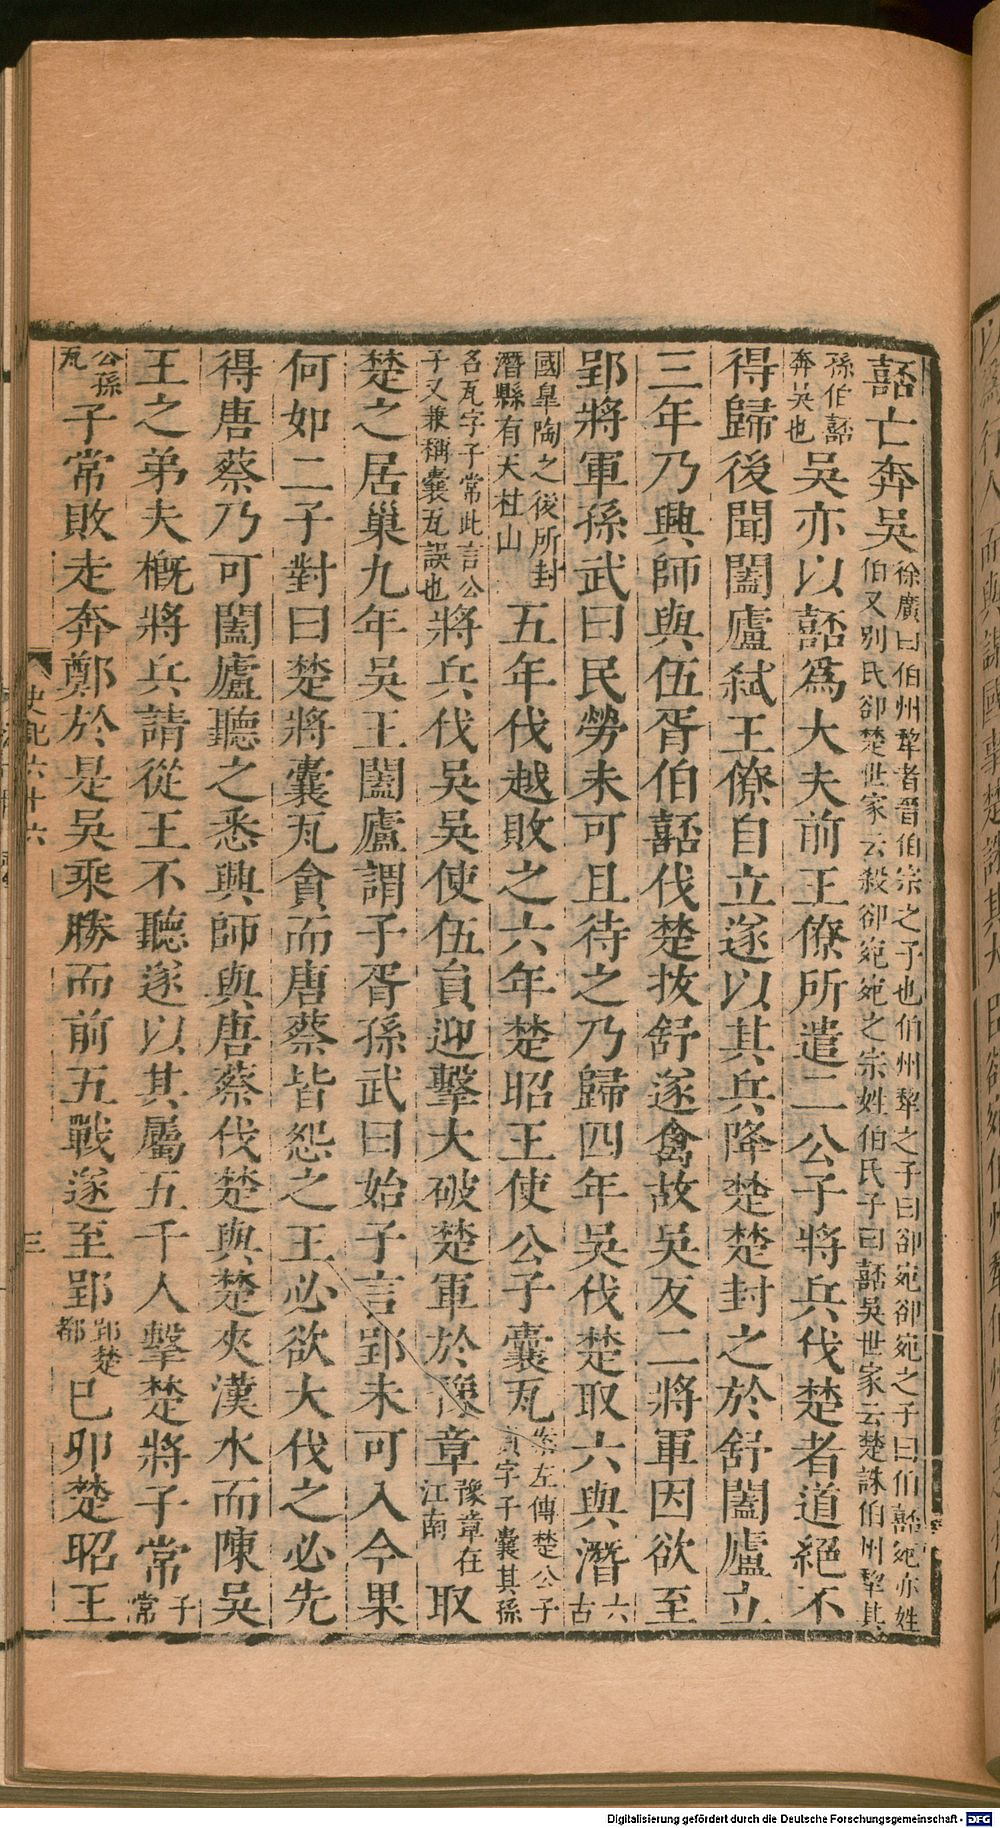 嚭亡奔吳徐廣曰伯州犂者晉伯宗之子也伯州犂之子曰郤宛郤宛之子曰伯嚭宛亦姓伯又別氏郤楚世家云殺郤宛宛之宗姓伯氏子曰嚭吳世家云楚誅伯州犂其
孫伯嚭奔吳也吳亦以嚭爲大夫前王僚所遣二公子將兵伐楚者道絕不
得歸後聞闔廬弑王僚自立遂以其兵降楚楚封之於舒闔廬立
三年乃興師與伍胥伯嚭伐楚拔舒遂禽故吳反二將軍因欲至
郢將軍孫武曰民勞未可且待之乃歸四年吳伐楚取六與潛六古
國皐陶之後所封潛縣有天柱山五年伐越敗之六年楚昭王使公子囊瓦案左傳楚公子貞字子囊其孫
名瓦字子常此言公子又兼稱囊瓦誤也將兵伐吳吳使伍員迎擊大破楚軍於豫章豫章在江南取
楚之居巢九年吳王闔廬謂子胥孫武曰始子言郢未可入今果
何如二子對曰楚將囊瓦貪而唐蔡皆怨之王必欲大伐之必先
得唐蔡乃可闔廬聽之悉興師與唐蔡伐楚與楚夾漢水而陳吳
王之弟夫槪將兵請從王不聽遂以其屬五千人擊楚將子常子常
公孫瓦子常敗走奔鄭於是吳乘勝而前五戰遂至郢郢楚都已卯楚昭王
史記六十六
三
Digitalisierung gefördert durch die Deutsche Forschungsgemeinschaft - DFG